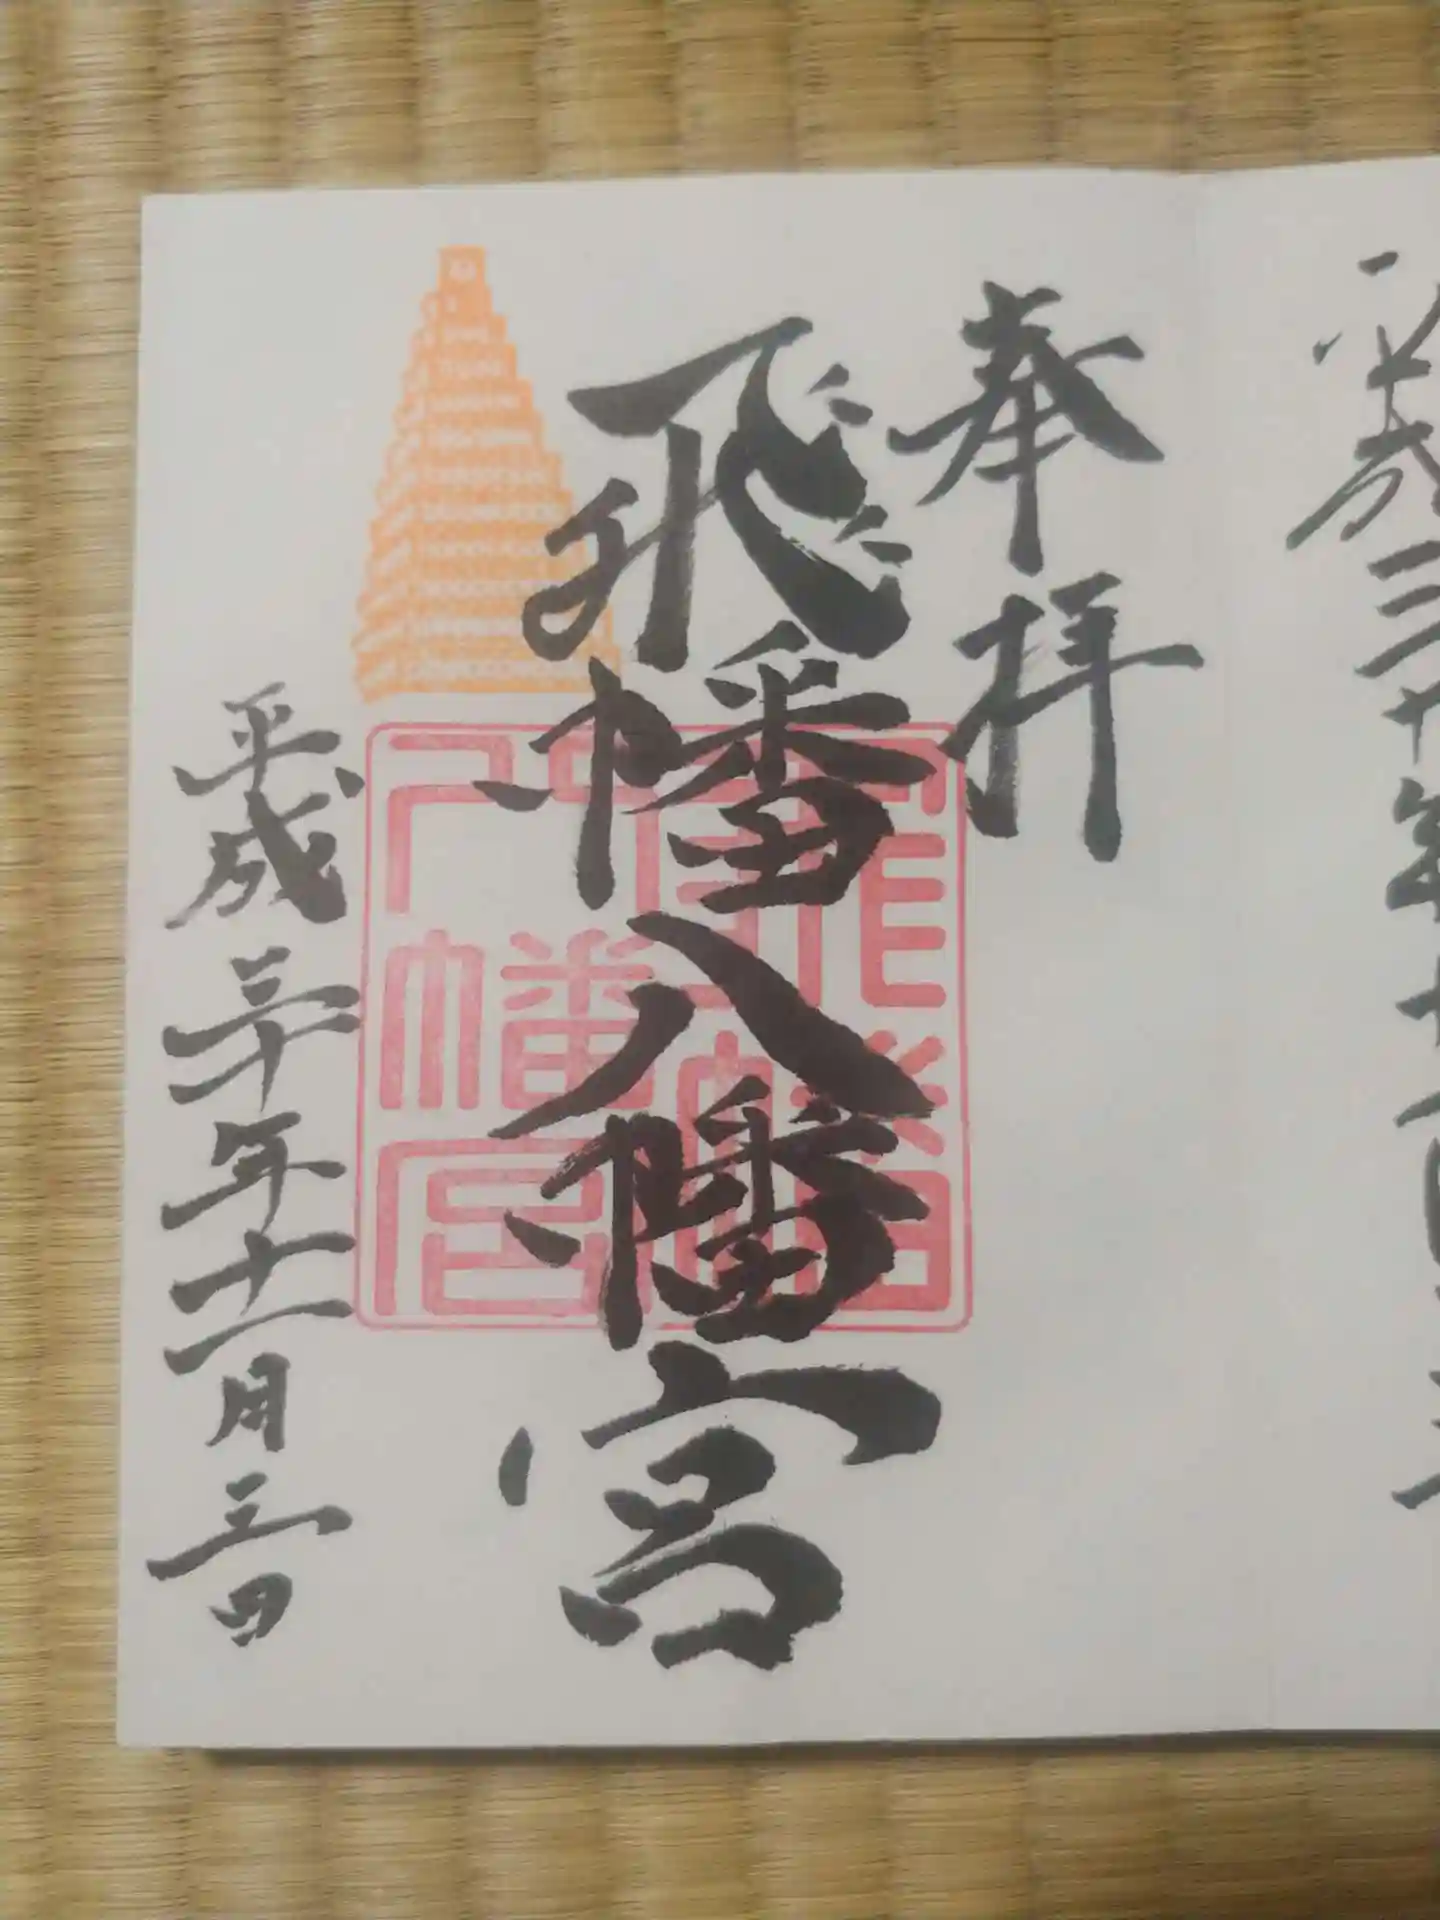 平成三十年十
奉拝
飛幡八幡宮
飛幡
八幡宮
平成三十年十一月三日